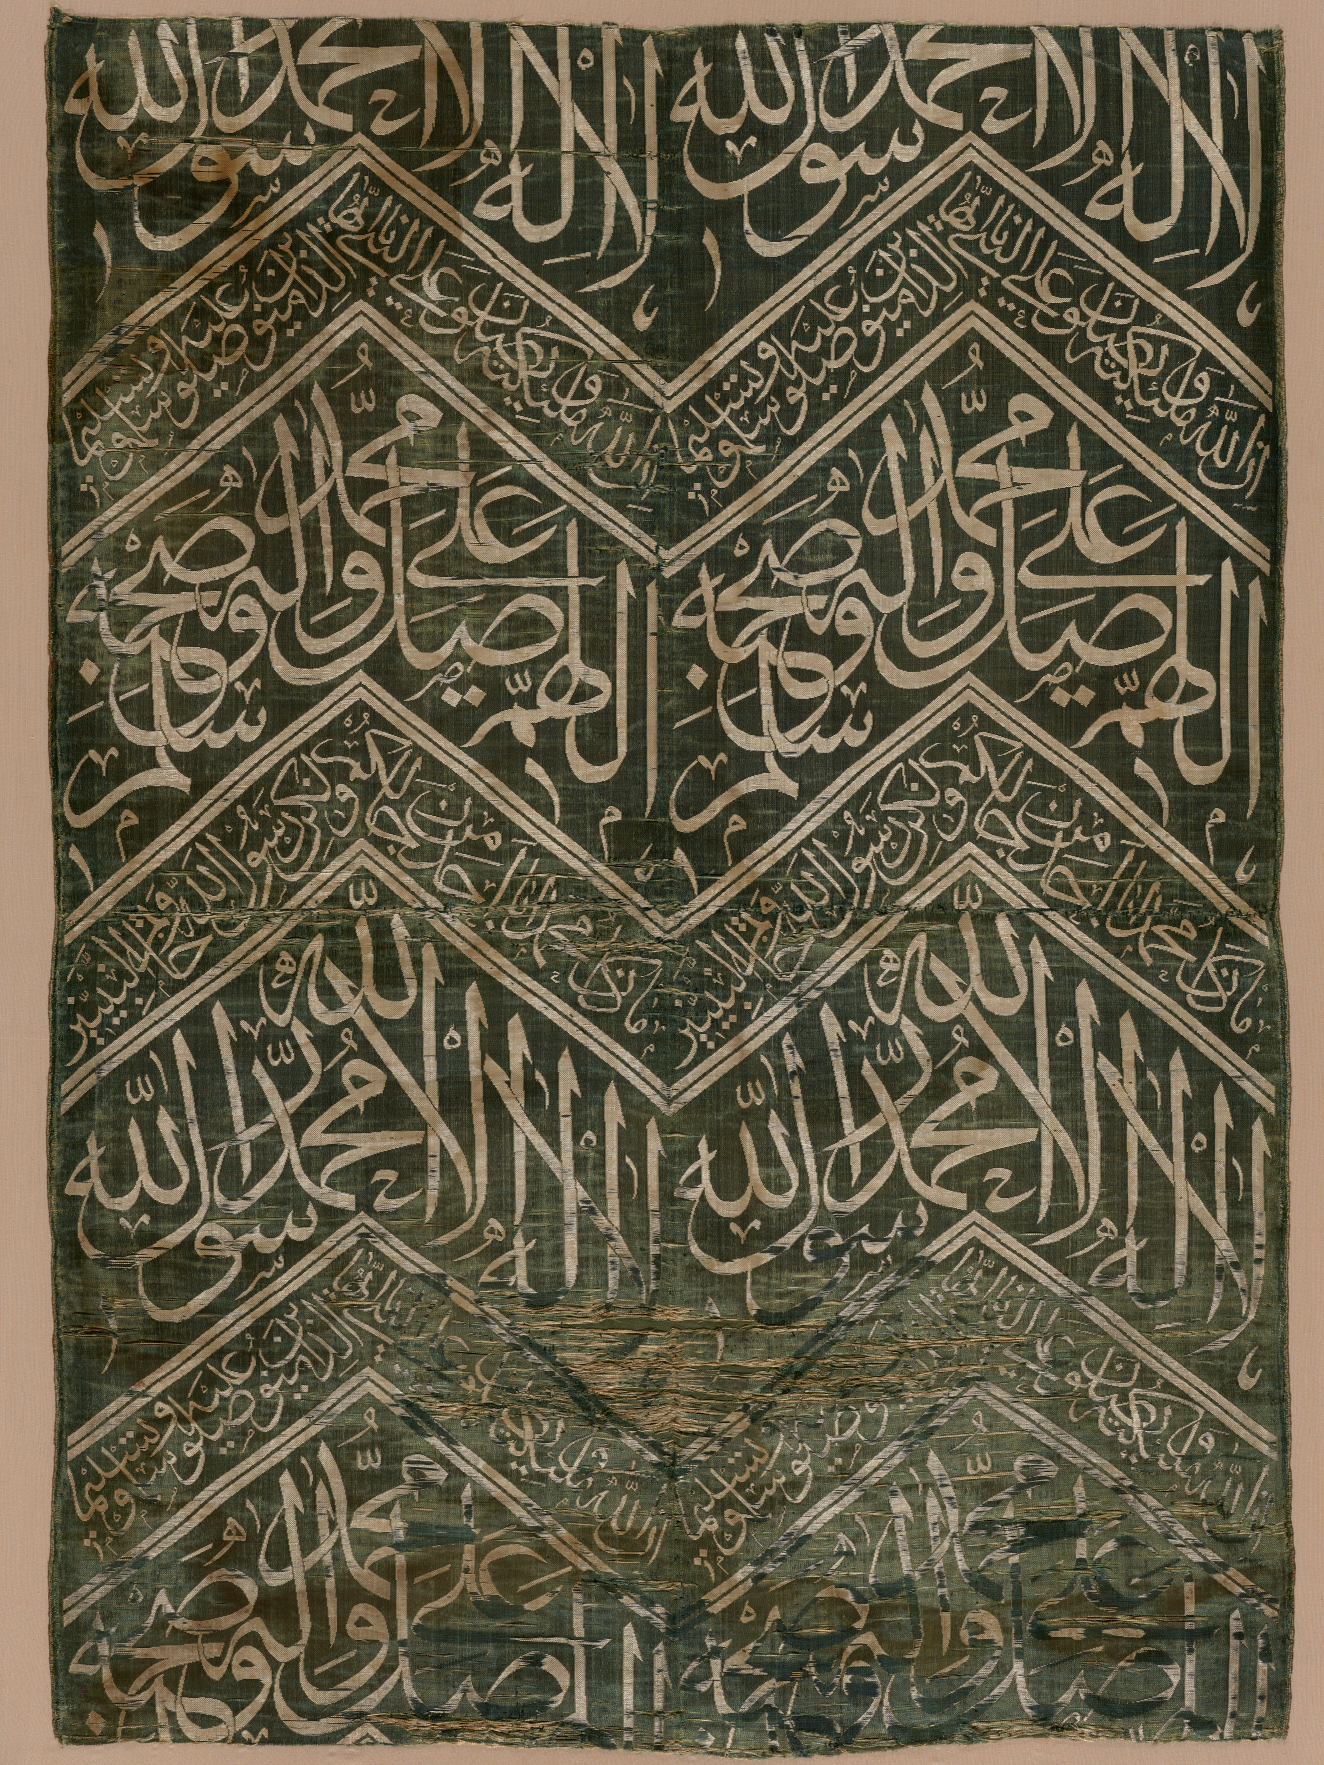 لا اله الا محمد رسول الله لا اله الا محمد رسول الله
ان الله وملائكته يصلون على النبي يا ايها الذين امنوا صلوا عليه وسلموا تسليما ان الله وملائكته يصلون على النبي يا ايها الذين امنوا صلوا عليه وسلموا تسليما
اللهم صل على محمد واله وصحبه وسلم اللهم صل على محمد واله وصحبه وسلم
ما كان محمد ابا احد من رجالكم ولكن رسول الله وخاتم النبيين ما كان محمد ابا احد من رجالكم ولكن رسول الله وخاتم النبيين
لا اله الا الله محمد رسول الله لا اله الا الله محمد رسول الله
ان الله وملائكته يصلون على النبي يا ايها الذين امنوا صلوا عليه وسلموا تسليما ان الله وملائكته يصلون النبي وسلموا تسليما
صل على محمد واله وصحبه صل على محمد واله وصحبه